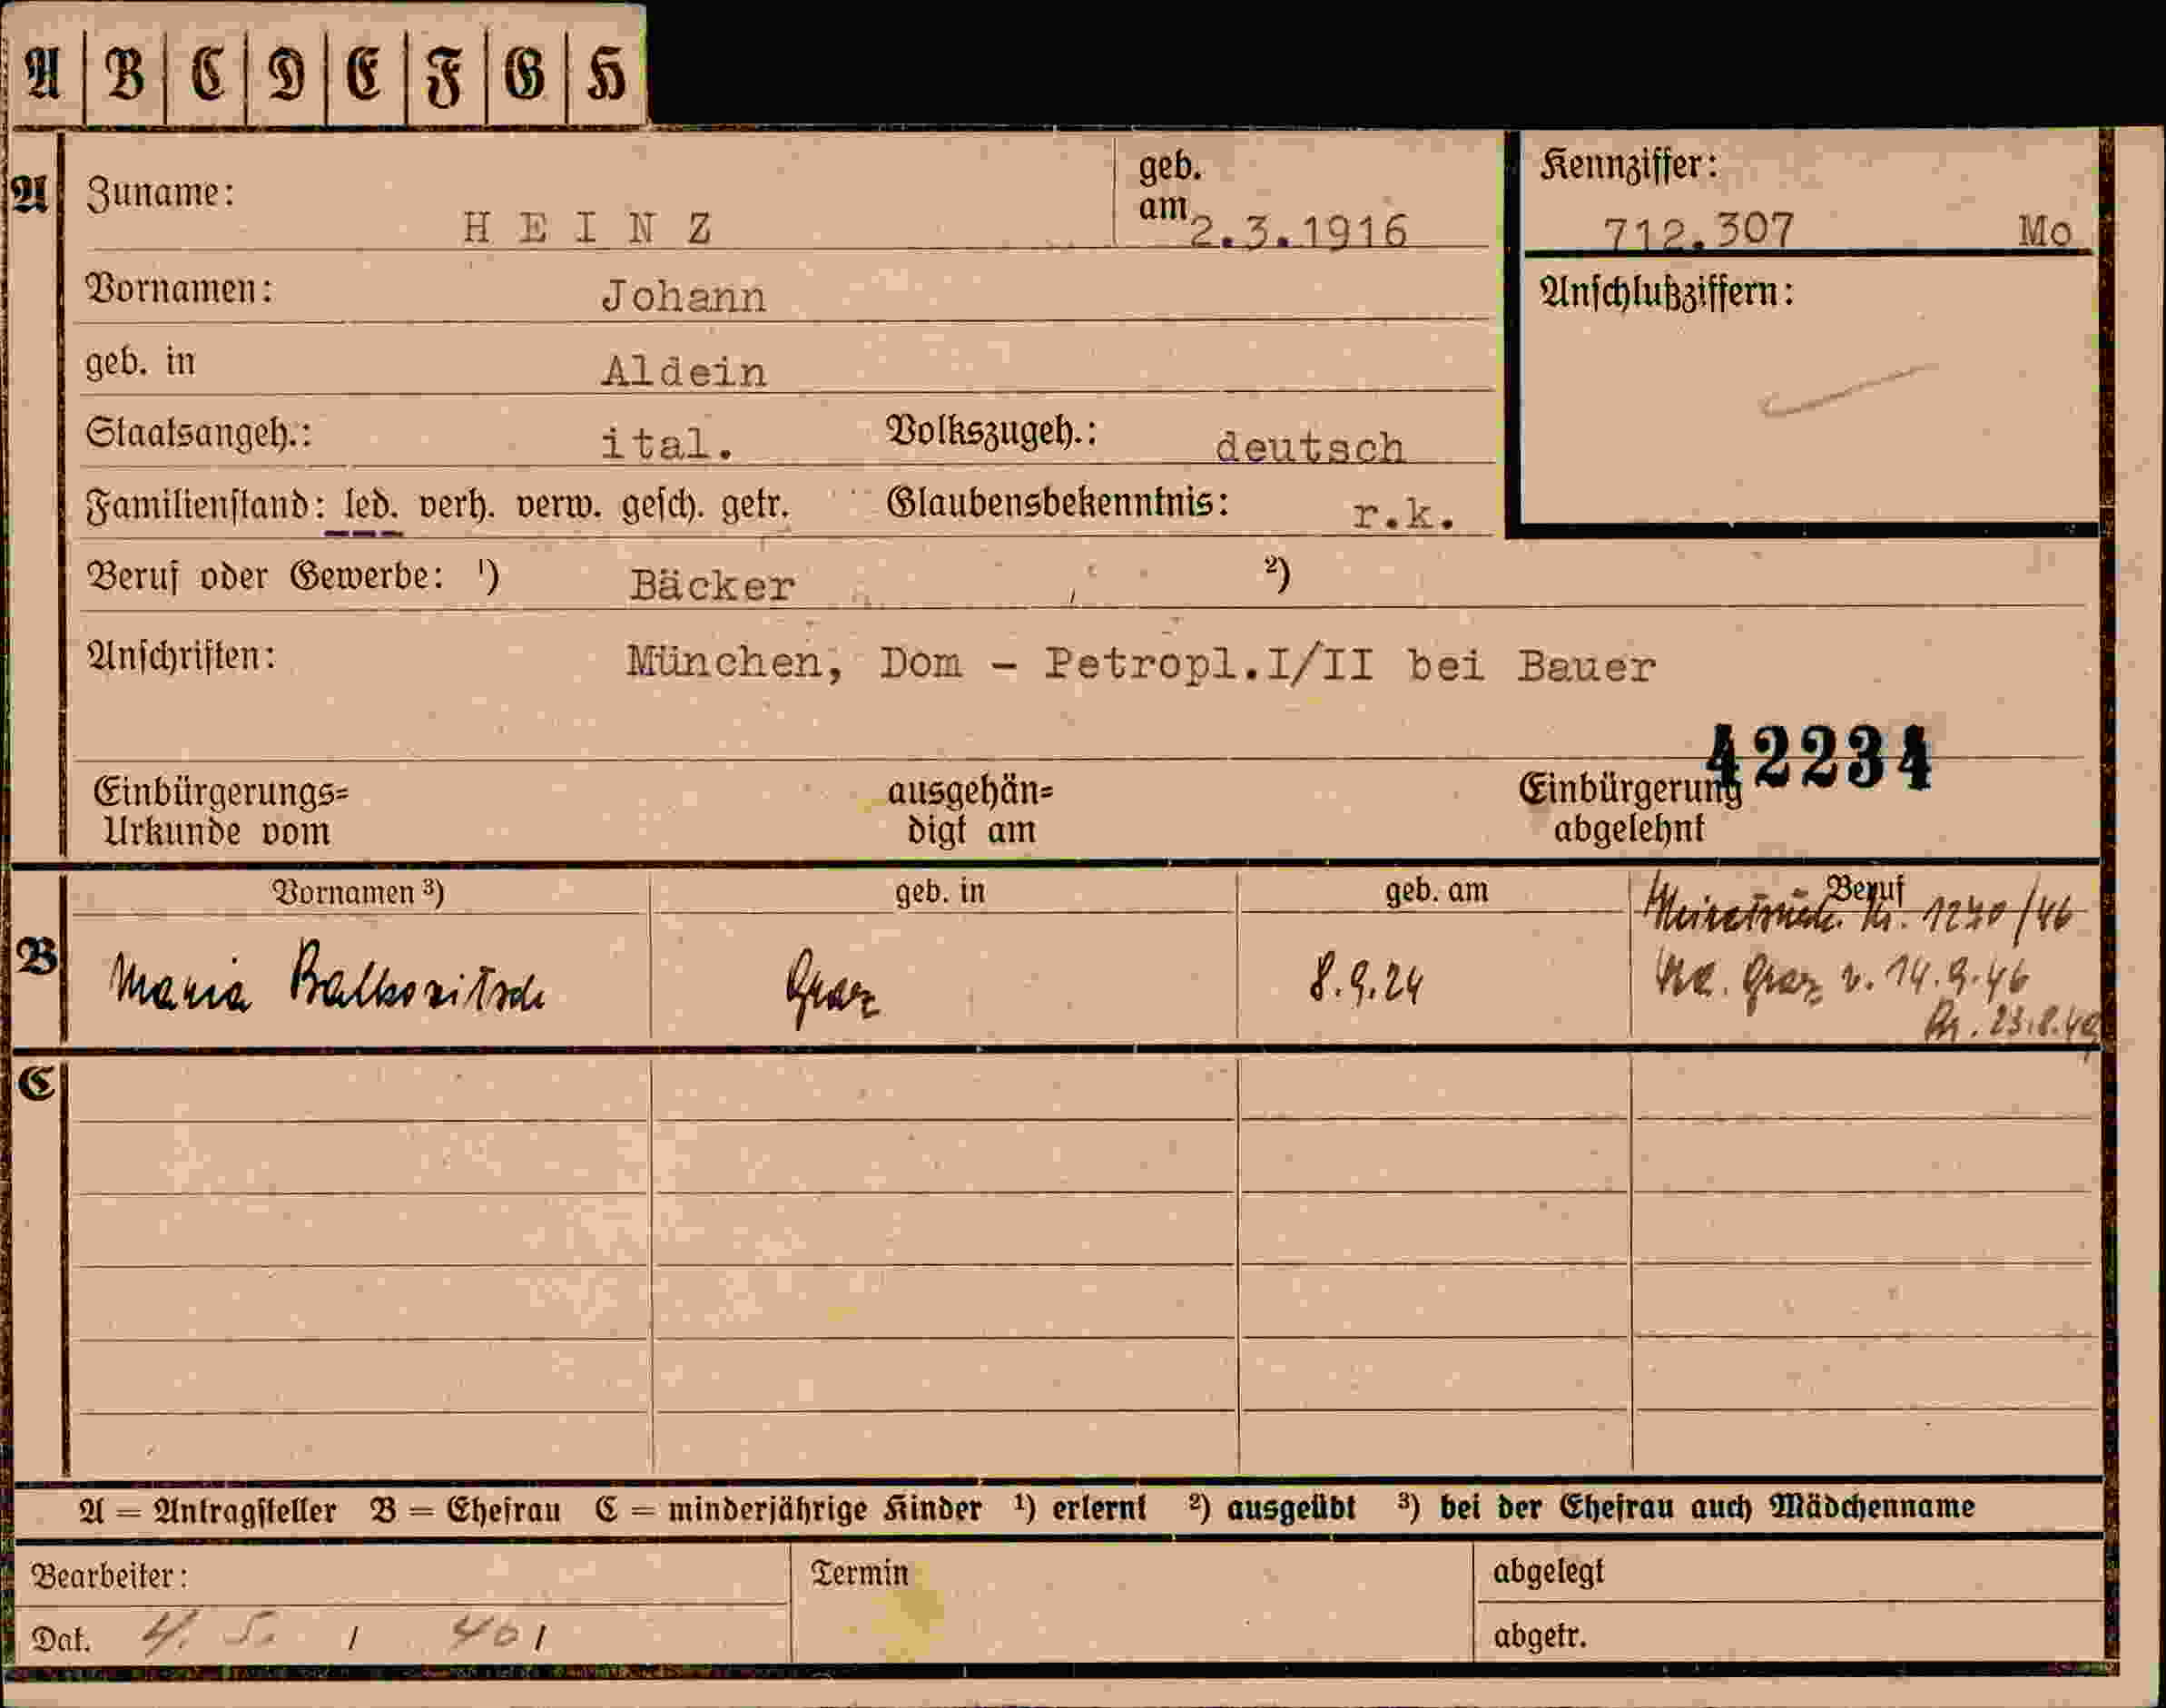 A B C D E F G H
A Zuname: HEINZ geb. am 2.3.1916
Kennziffer: 712.307 Mo
Vornamen: Johann
Anschlußziffern:
geb. in Aldein
Staatsangeh.: ital. Volkszugeh.: deutsch
Familienstand: led. verh. verw. gesch. getr. Glaubensbekenntnis: r.k.
Beruf oder Gewerbe: ¹) Bäcker ²)
Anschriften: München, Dom - Petropl.I/II bei Bauer
42234
Einbürgerungs= ausgehän= Einbürgerung
Urkunde vom digt am abgelehnt
Vornamen ³) geb. in geb. am Beruf
Nr. 1240/46
B Maria Balkovitsch Graz 8.9.24 Graz v. 14.9.46
23.8.49
C
A = Antragsteller B = Ehefrau C = minderjährige Kinder ¹) erlernt ²) ausgeübt ³) bei der Ehefrau auch Mädchenname
Bearbeiter: Termin abgelegt
Dat. 4. 5. / 40 / abgetr.